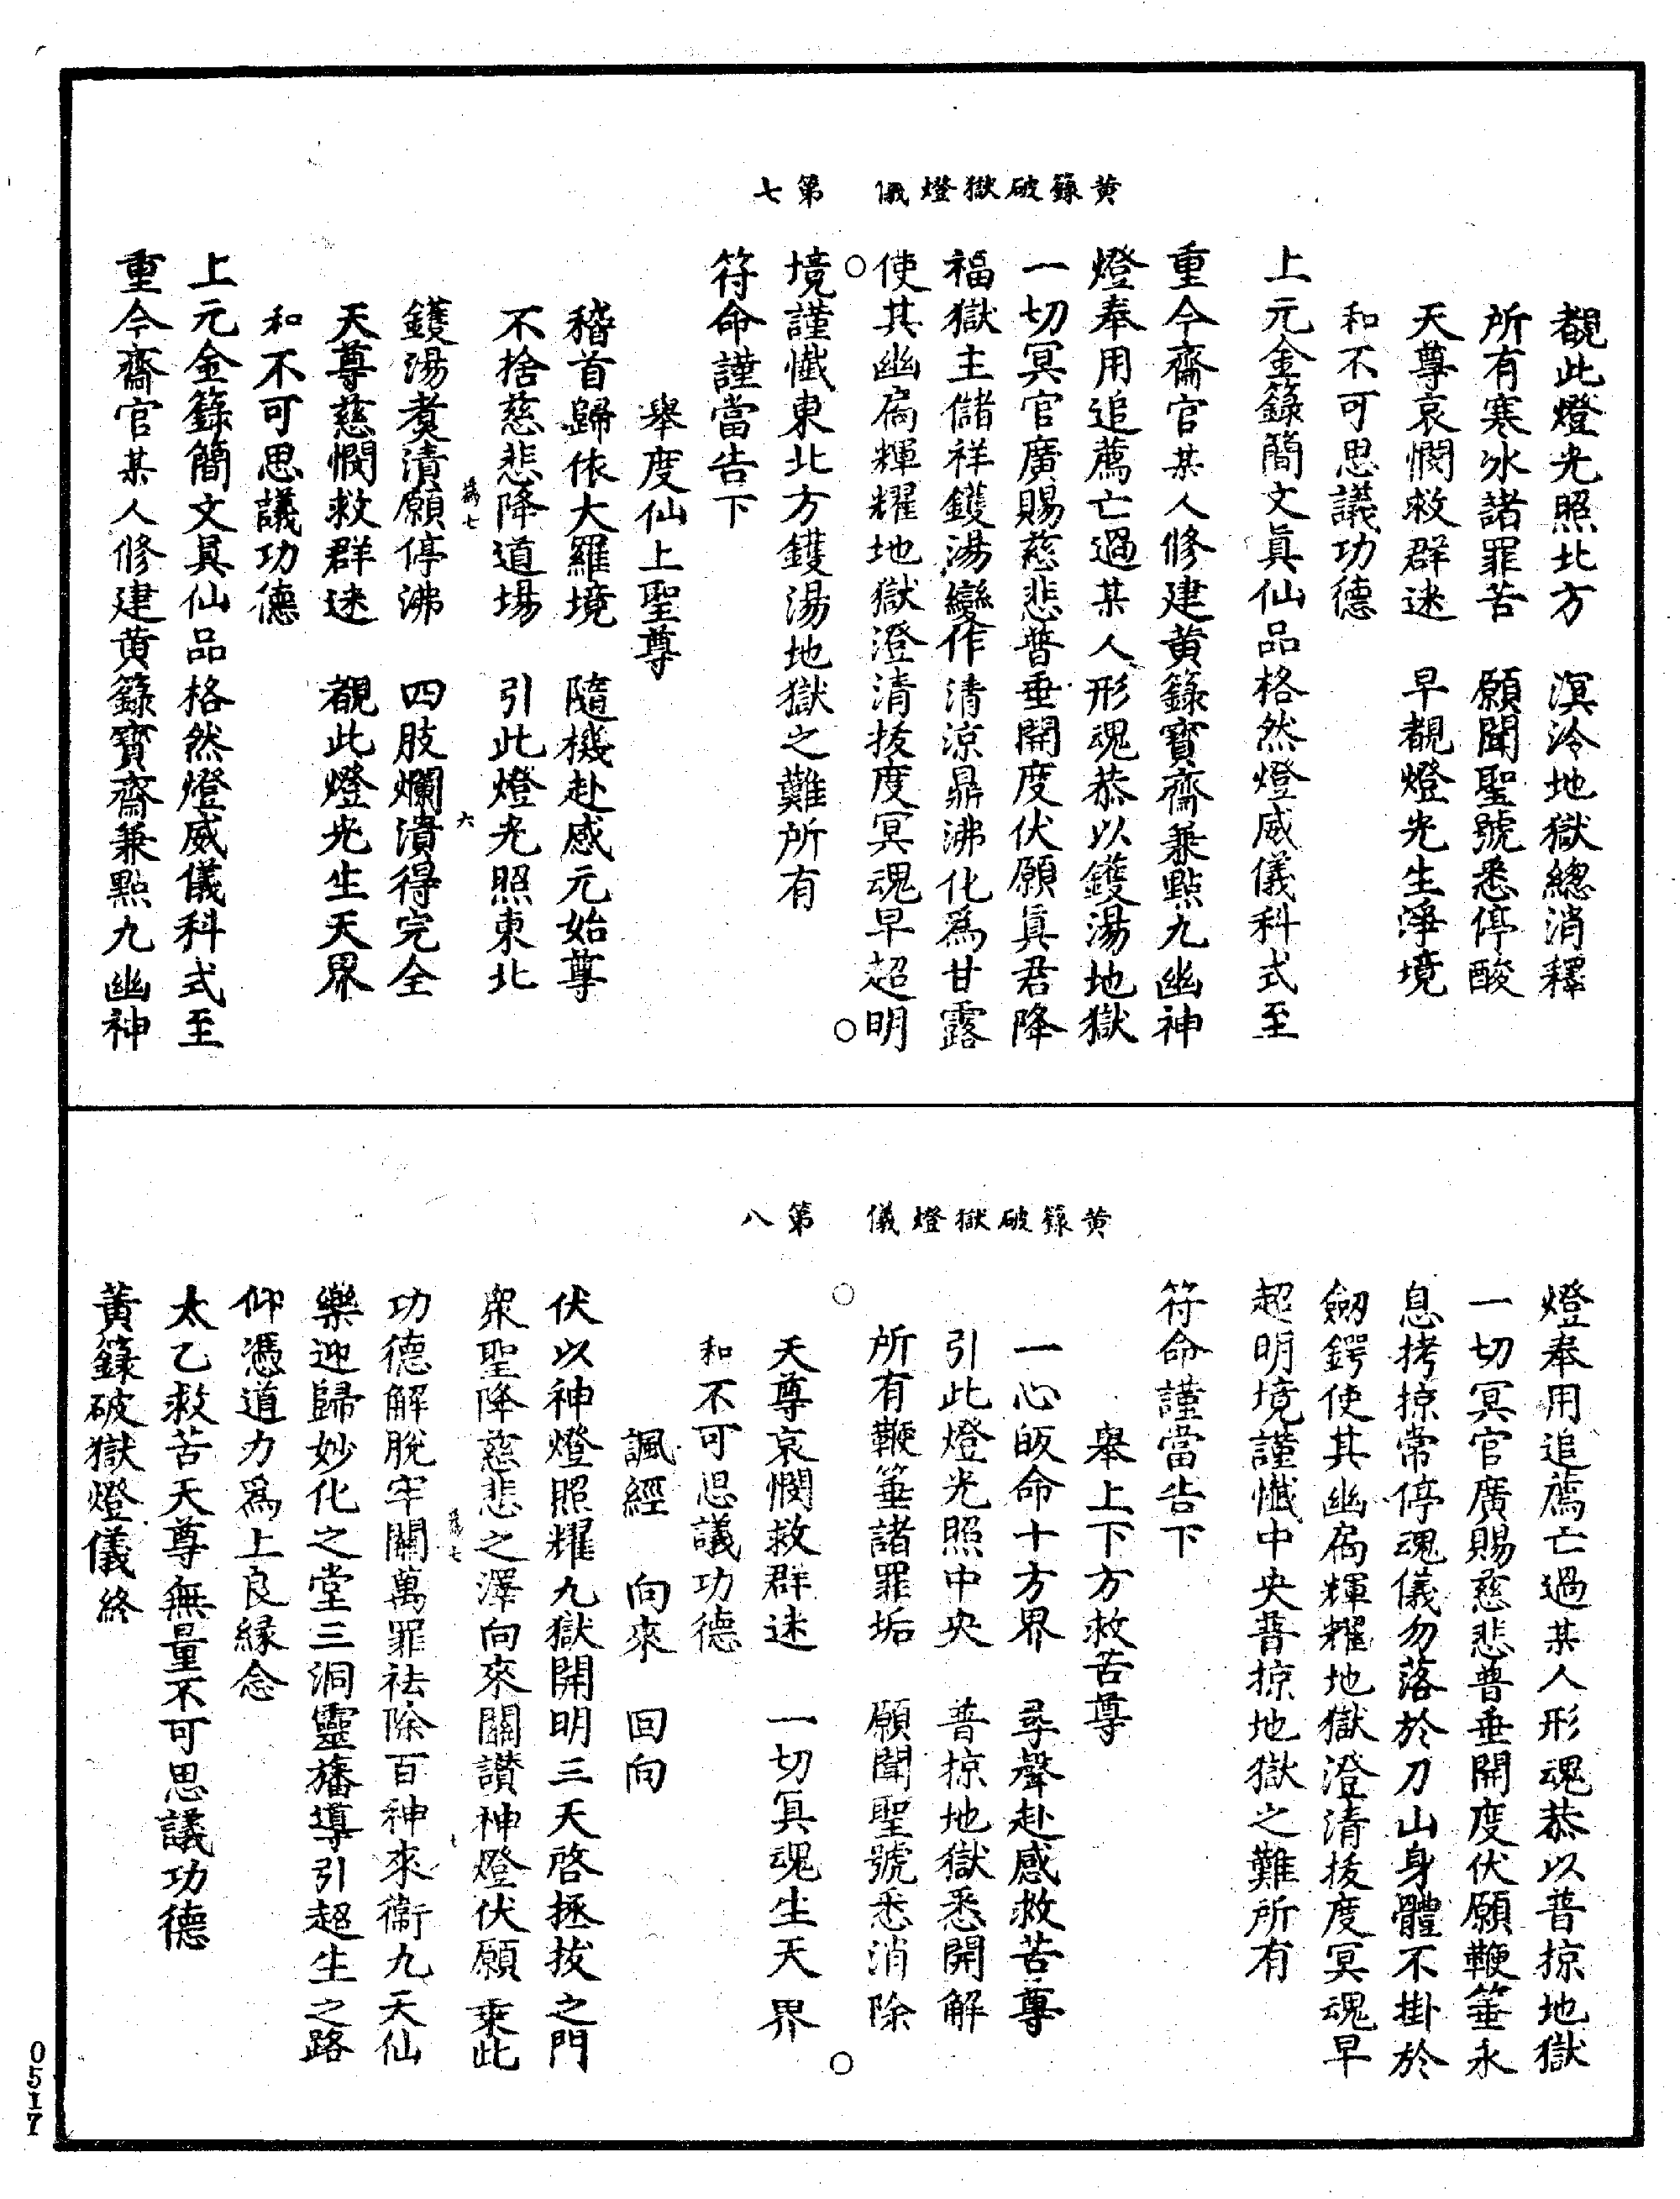 黃籙破獄燈儀　第七
覩此燈光照北方　溟泠地獄總消釋
所有寒冰諸罪苦　願聞聖號悉停酸
天尊哀憫救群迷　早覩燈光生淨境
和不可思議功德
上元金籙簡文眞仙品格然燈威儀科式至
重今齋官某人修建黃籙寶齋兼點九幽神
燈奉用追薦亡過某人形魂恭以鑊湯地獄
一切冥官廣賜慈悲普垂開度伏願眞君降
福獄主儲祥鑊湯變作清涼鼎沸化爲甘露
使其幽扃輝耀地獄澄清拔度冥魂早超明
境謹懺東北方鑊湯地獄之難所有
符命謹當告下
舉度仙上聖尊
稽首歸依大羅境　隨機赴感元始尊
不捨慈悲降道場　引此燈光照東北
七
六
鑊湯煑漬願停沸　四肢爛潰得完全
天尊慈憫救群迷　覩此燈光生天界
和不可思議功德
上元金籙簡文眞仙品格然燈威儀科式至
重今齋官某人修建黃籙寶齋兼點九幽神
黃籙破獄燈儀　第八
燈奉用追薦亡過某人形魂恭以普掠地獄
一切冥官廣賜慈悲普垂開度伏願鞭箠永
息拷掠常停魂儀勿落於刀山身體不掛於
劒鍔使其幽扃輝耀地獄澄清拔度冥魂早
超明境謹懺中央普掠地獄之難所有
符命謹當告下
舉上下方救苦尊
一心皈命十方界　尋聲赴感救苦尊
引此燈光照中央　普掠地獄悉開解
所有鞭箠諸罪垢　願聞聖號悉消除
天尊哀憫救群迷　一切冥魂生天界
和不可思議功德
諷經　向來　回向
伏以神燈照耀九獄開明三天啓拯拔之門
衆聖降慈悲之澤向來關讃神燈伏願乘此
七
七
功德解脫牢關萬罪祛除百神來衞九天仙
樂迎歸妙化之堂三洞靈旛導引超生之路
仰憑道力爲上良緣念
太乙救苦天尊無量不可思議功德
黃籙破獄燈儀終
0517